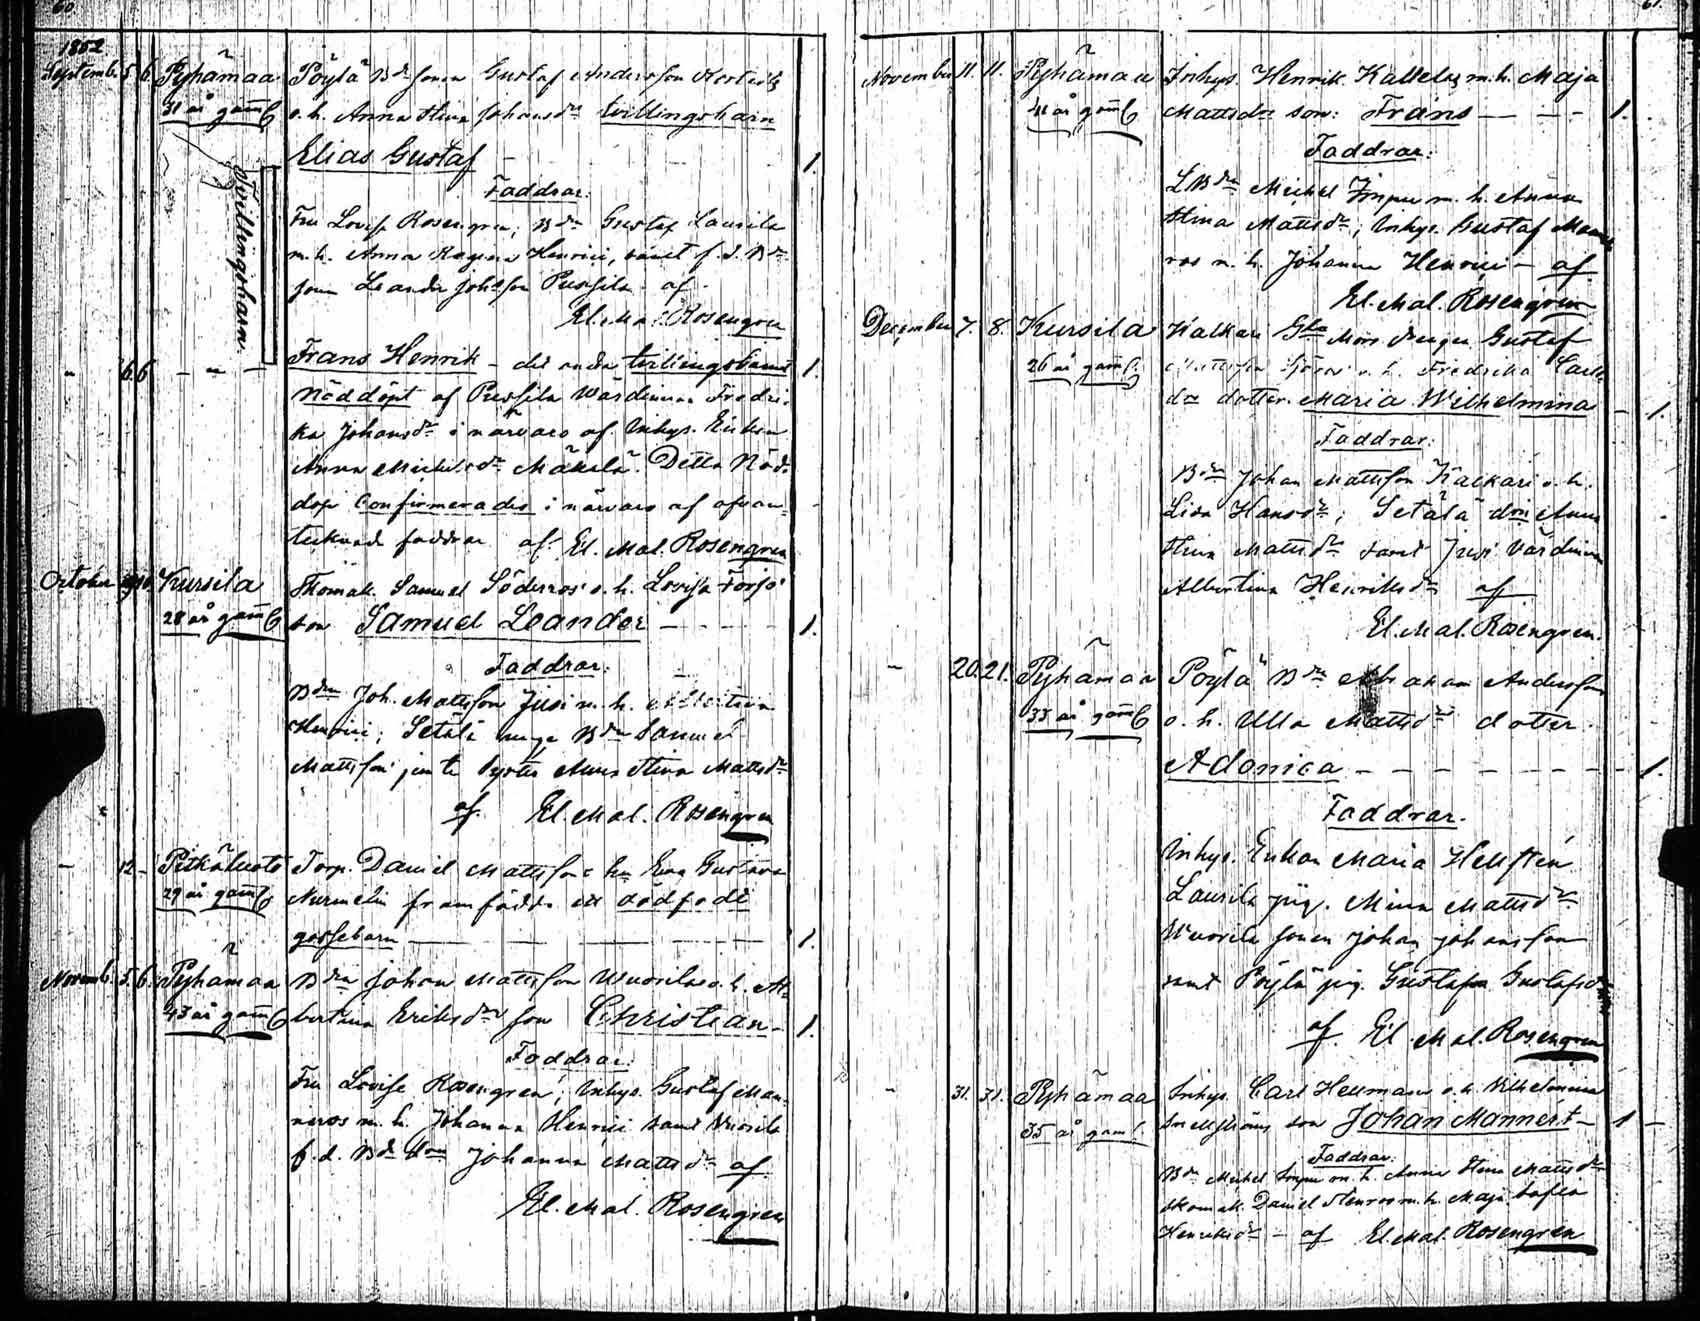 60
1852
Septemb. 5. 6. Pyhämaa Pöylä Bd. sonen Gustaf Andersson
31 år gam̄l o. h. Anna Stina Johansdr tvillingsbarn
Elias Gustaf — 1.
Faddrar:
Tvillingsbarn
Fru Lovisa Rosengren; Bdn Gustaf Laurila
m. h. Anna Regina Henrici, samt f. d. Bd
son Leander Johsson Pussila af
El. Mal. Rosengren
" 6 6 — " — Frans Henrik — det andra tvillingsbarnet 1.
Nöddöpt af Pussila Wärdinnan Fredri-
ka Johansdr i närvaro af Inhys. Enkan
Anna Michelsdr Mäkelä. Detta Nöd-
dop confirmerades i närvaro af ofvan-
tecknade faddrar af El. Mal. Rosengren
October Kursila Skomak. Samuel Söderros o. h. Lovisa
28 år gam̄l son Samuel Leander — — — 1.
Faddrar:
Bdn Joh. Mattsson Jussi m. h. Albertina
Henrici; Setälä Bdn Samuel
Mattsson jemte Anna Stina Mattsdr
af El. Mal. Rosengren
— 12 — Pitkäluoto Torp. Daniel Mattsson o hu Eva Gustava
29 år gam̄l Nurmelin framfödde ett dödfödt
gossebarn — — — 1.
Novemb. 5. 6. Pyhämaa Bdn Johan Mattsson Wuorila o. h. Al-
43 år gam̄l bertina Eriksdr son Christian — 1.
Faddrar:
Fru Lovisa Rosengren; Inhys. Gustaf Man-
neros m. h. Johanna Henrici samt Wuorila
f. d. Bd Johanna Mattsdr af
El. Mal. Rosengren
61.
November 11. 11. Pyhämaa Inhys. Henrik Kallela m. h. Maja
41 år gam̄l Mattsdr son: Frans — — — 1.
Faddrar:
LBdn Michel Impu m. h. Anna
Stina Mattsdr; Inhys. Gustaf Manne
ros m. h. Johanna Henrici — af
El. Mal. Rosengren
December 7. 8. Kursila Kalkari Gustaf
26 år gam̄l o. h. Fredrika Carls
dr dotter Maria Wilhelmina — 1.
Faddrar:
Bdn Johan Mattsson Kalkari o. h.
Lisa Hansdr; Setälä Anna
Stina Mattsdr samt Jussi Värdinnan
Albertina Henriksdr af
El. Mal. Rosengren.
— 20. 21. Pyhämaa Pöylä Bdn Abraham Andersson
33 år gam̄l o. h. Ulla Mattsdr dotter
Adonica — — — 1.
Faddrar.
Inhys. Enkan Maria Hellstén
Laurila pig. Mina Mattsdr
Wuorela sonen Johan Johansson
samt Pöylä pig. Gustafva Gustafsdr
af El. Mal. Rosengren
" 31. 31. Pyhämaa Inhys. Carl Heurman o. h. Vilhelmina
35 år gam̄l. son Johan Mannert — 1 —
Faddrar:
Bdn Michel Impu m. h. Anna Stina Mattsdr
Skomak. Daniel Stenroos m. h. Maja Sofia
Henriksdr — af El. Mal. Rosengren